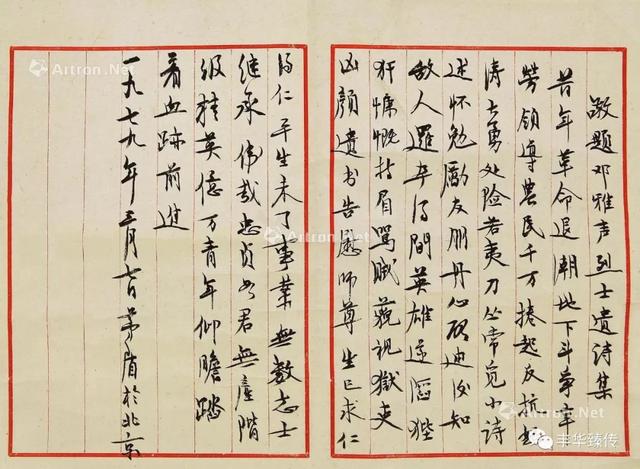 敬题邓雅声烈士遗诗集
昔年革命退潮地下斗争辛
劳领导农民千万捲起反抗怒
涛大勇处险若夷刀丛常觅小诗
述怀勉励友朋丹心启迪后知
敌人罗卒得间英雄遂陷狴
犴慷慨扬眉骂贼藐视狱吏
凶颜遗书告慰师尊生已求仁
得仁平生未了事业無数志士
继承伟哉忠贞如君無產階
级精英億万青年仰瞻踏
着血跡前进
一九七九年三月七日茅盾於北京
Artron.Net
Artron.Net
Artron.Net
Artron.Net
Artron.Net
丰华臻传